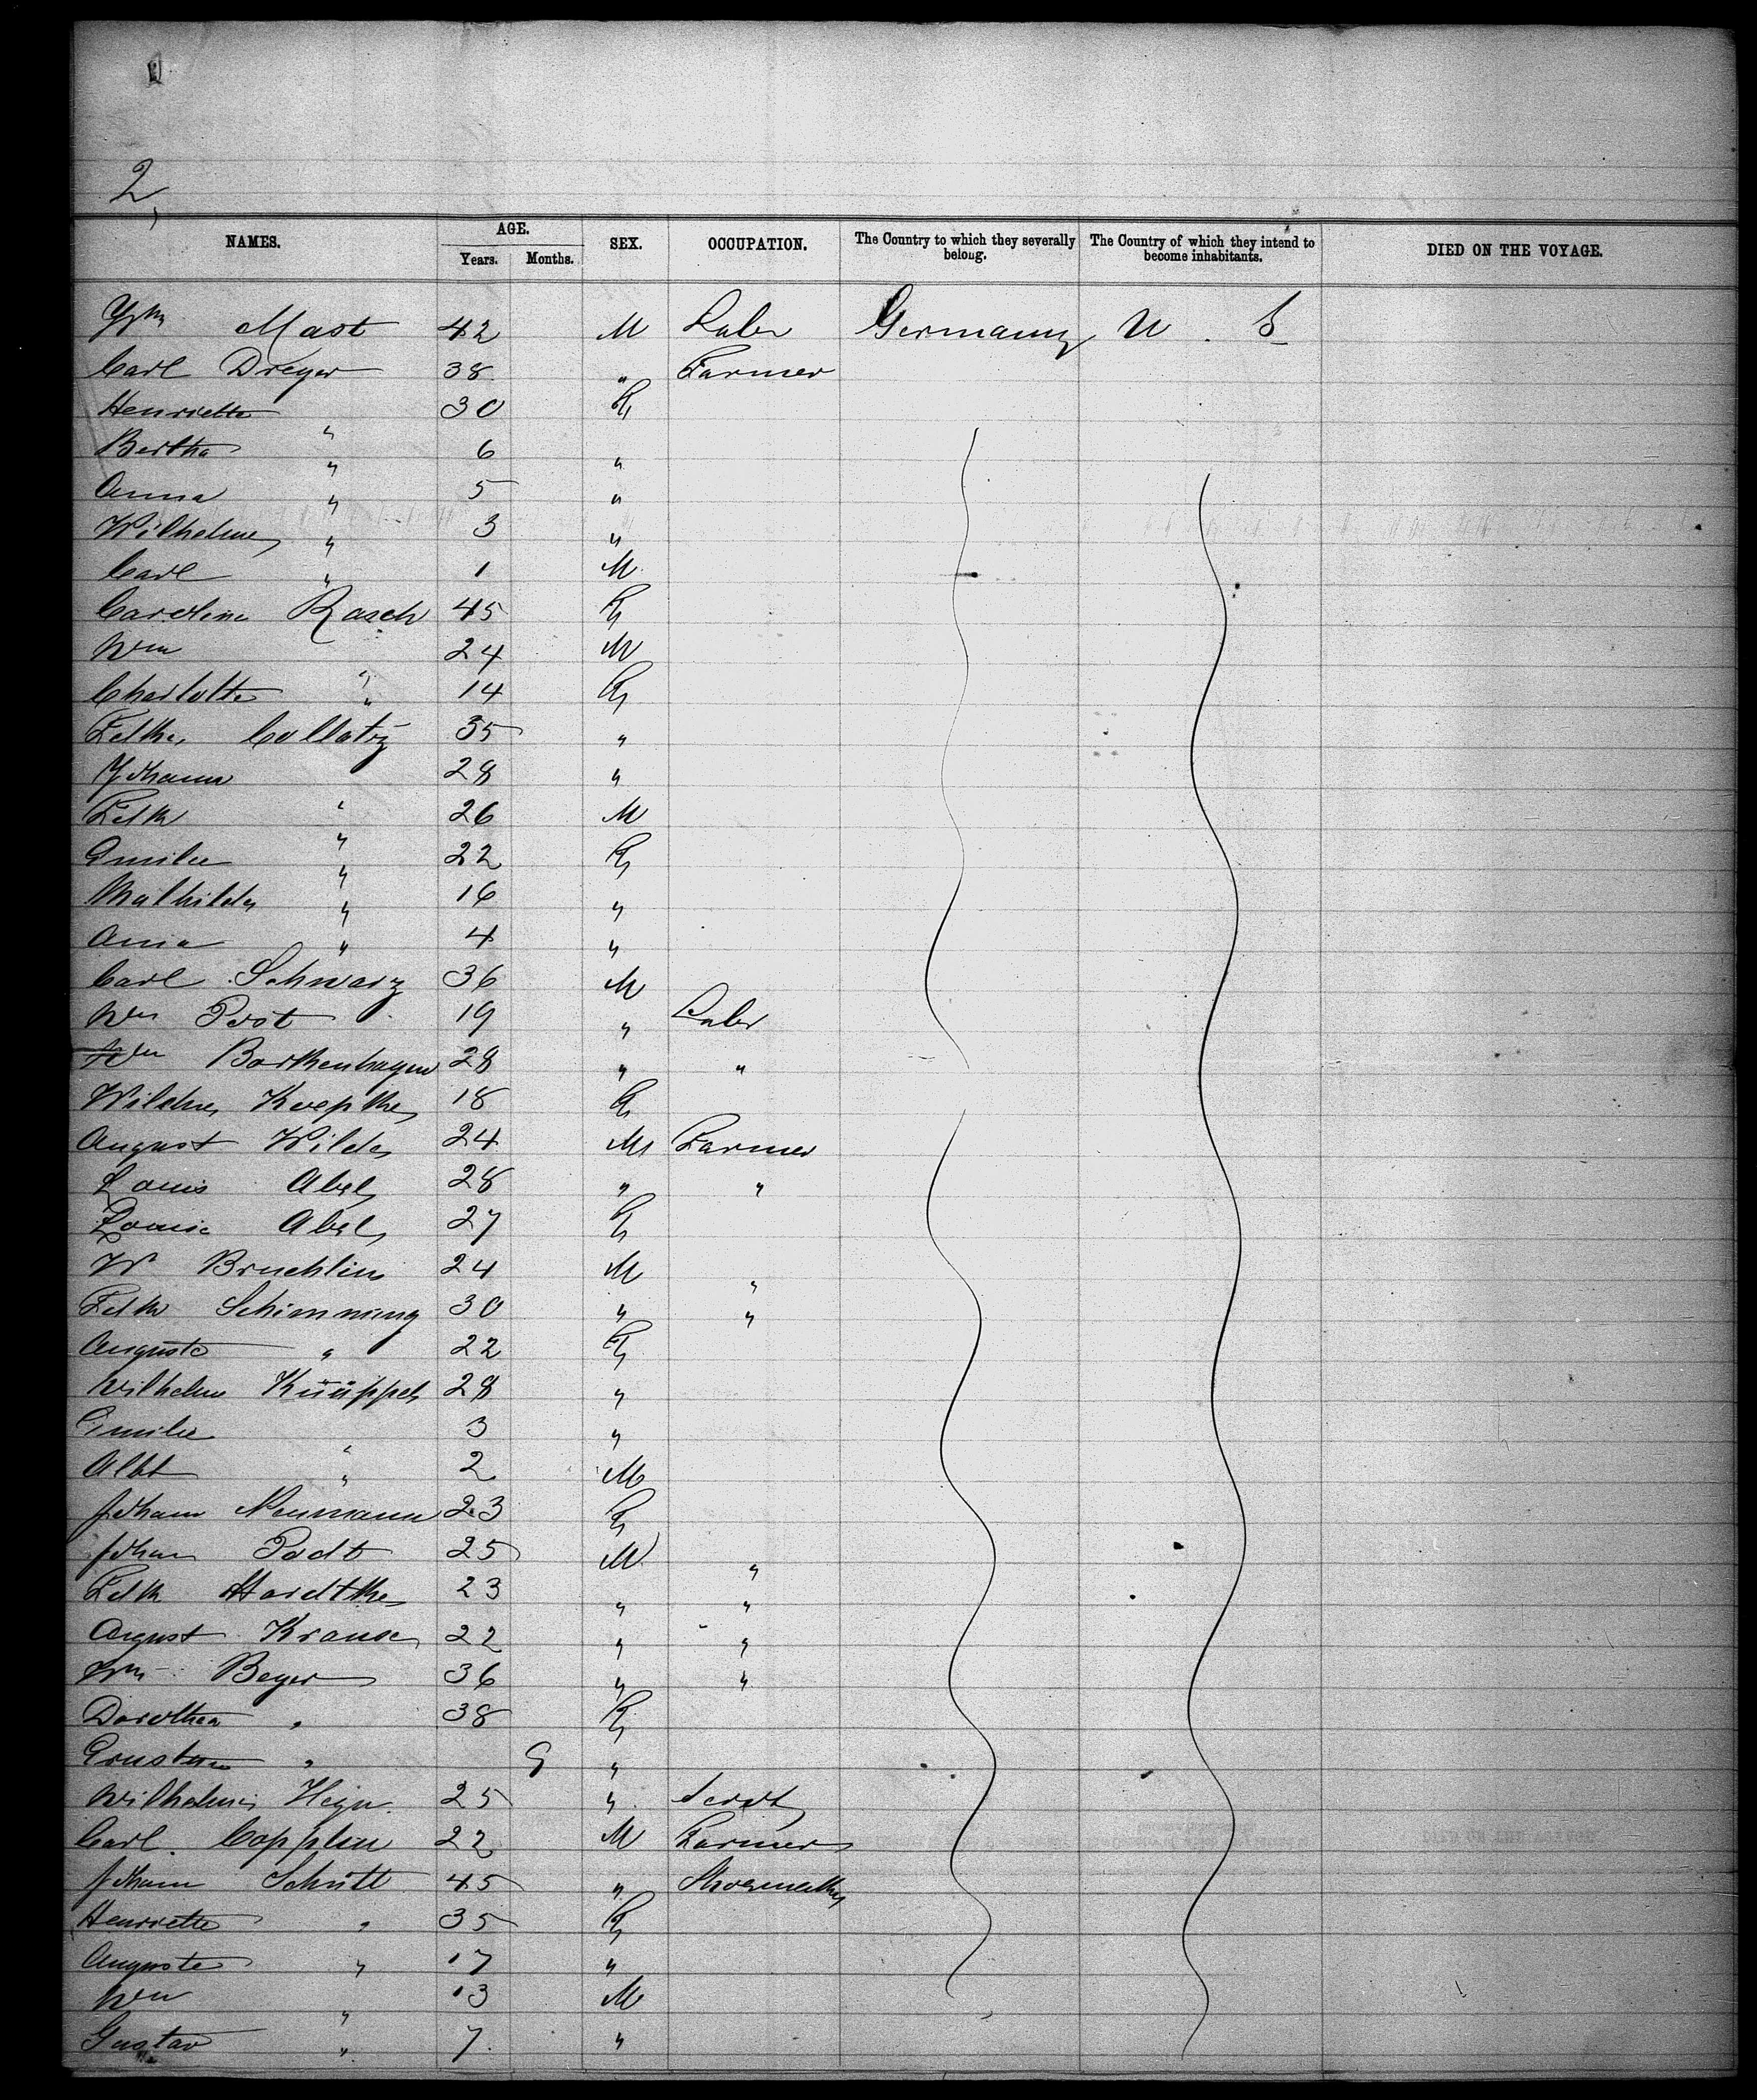 2,
NAMES. AGE. Years. Months. SEX. OCCUPATION. The Country to which they severally belong. The Country of which they intend to become inhabitants. DIED ON THE VOYAGE.
Wm Mast 42 M Labr Germany U. S
Carl Dreyer 38 " Farmer
Henriette " 30 F
Bertha " 6 "
Anna " 5 "
Wilhelme " 3 "
Carl " 1 M
Caroline Rasch 45 F
Wm " 24 M
Charlotte " 14 F
Collatz 35 "
Johann " 28 "
Fdk " 26 M
Emilie " 22 F
Mathilde " 16 "
Anna " 4 "
Carl Schwarz 36 M
Wm Post 19 " Labr
Wm Borkenhagen 28 " "
Koepke 18 F
August Wilde 24 M Farmer
Louis Abel 28 " "
Louise Abel 27 F
W Bruchlin 24 M "
Fdk Schimming 30 " "
Auguste " 22 F
Wilhelme Küüppel 28 "
Emilie " 3 "
Albt " 2 M
Johann Neumann 23 F
Johan Podt 25 M "
Fdk Hardtke 23 " "
August Krause 22 " "
Wm Beyer 36 " "
Dorothea " 38 F
" 9 "
Wilhelmine Heyn. 25 " Servt
Carl. Copplin 22 M Farmer
Johann Schütt 45 " Shoemaker
Henriette " 35 F
Auguste " 17 "
Wm " 13 M
Gustav " 7. "